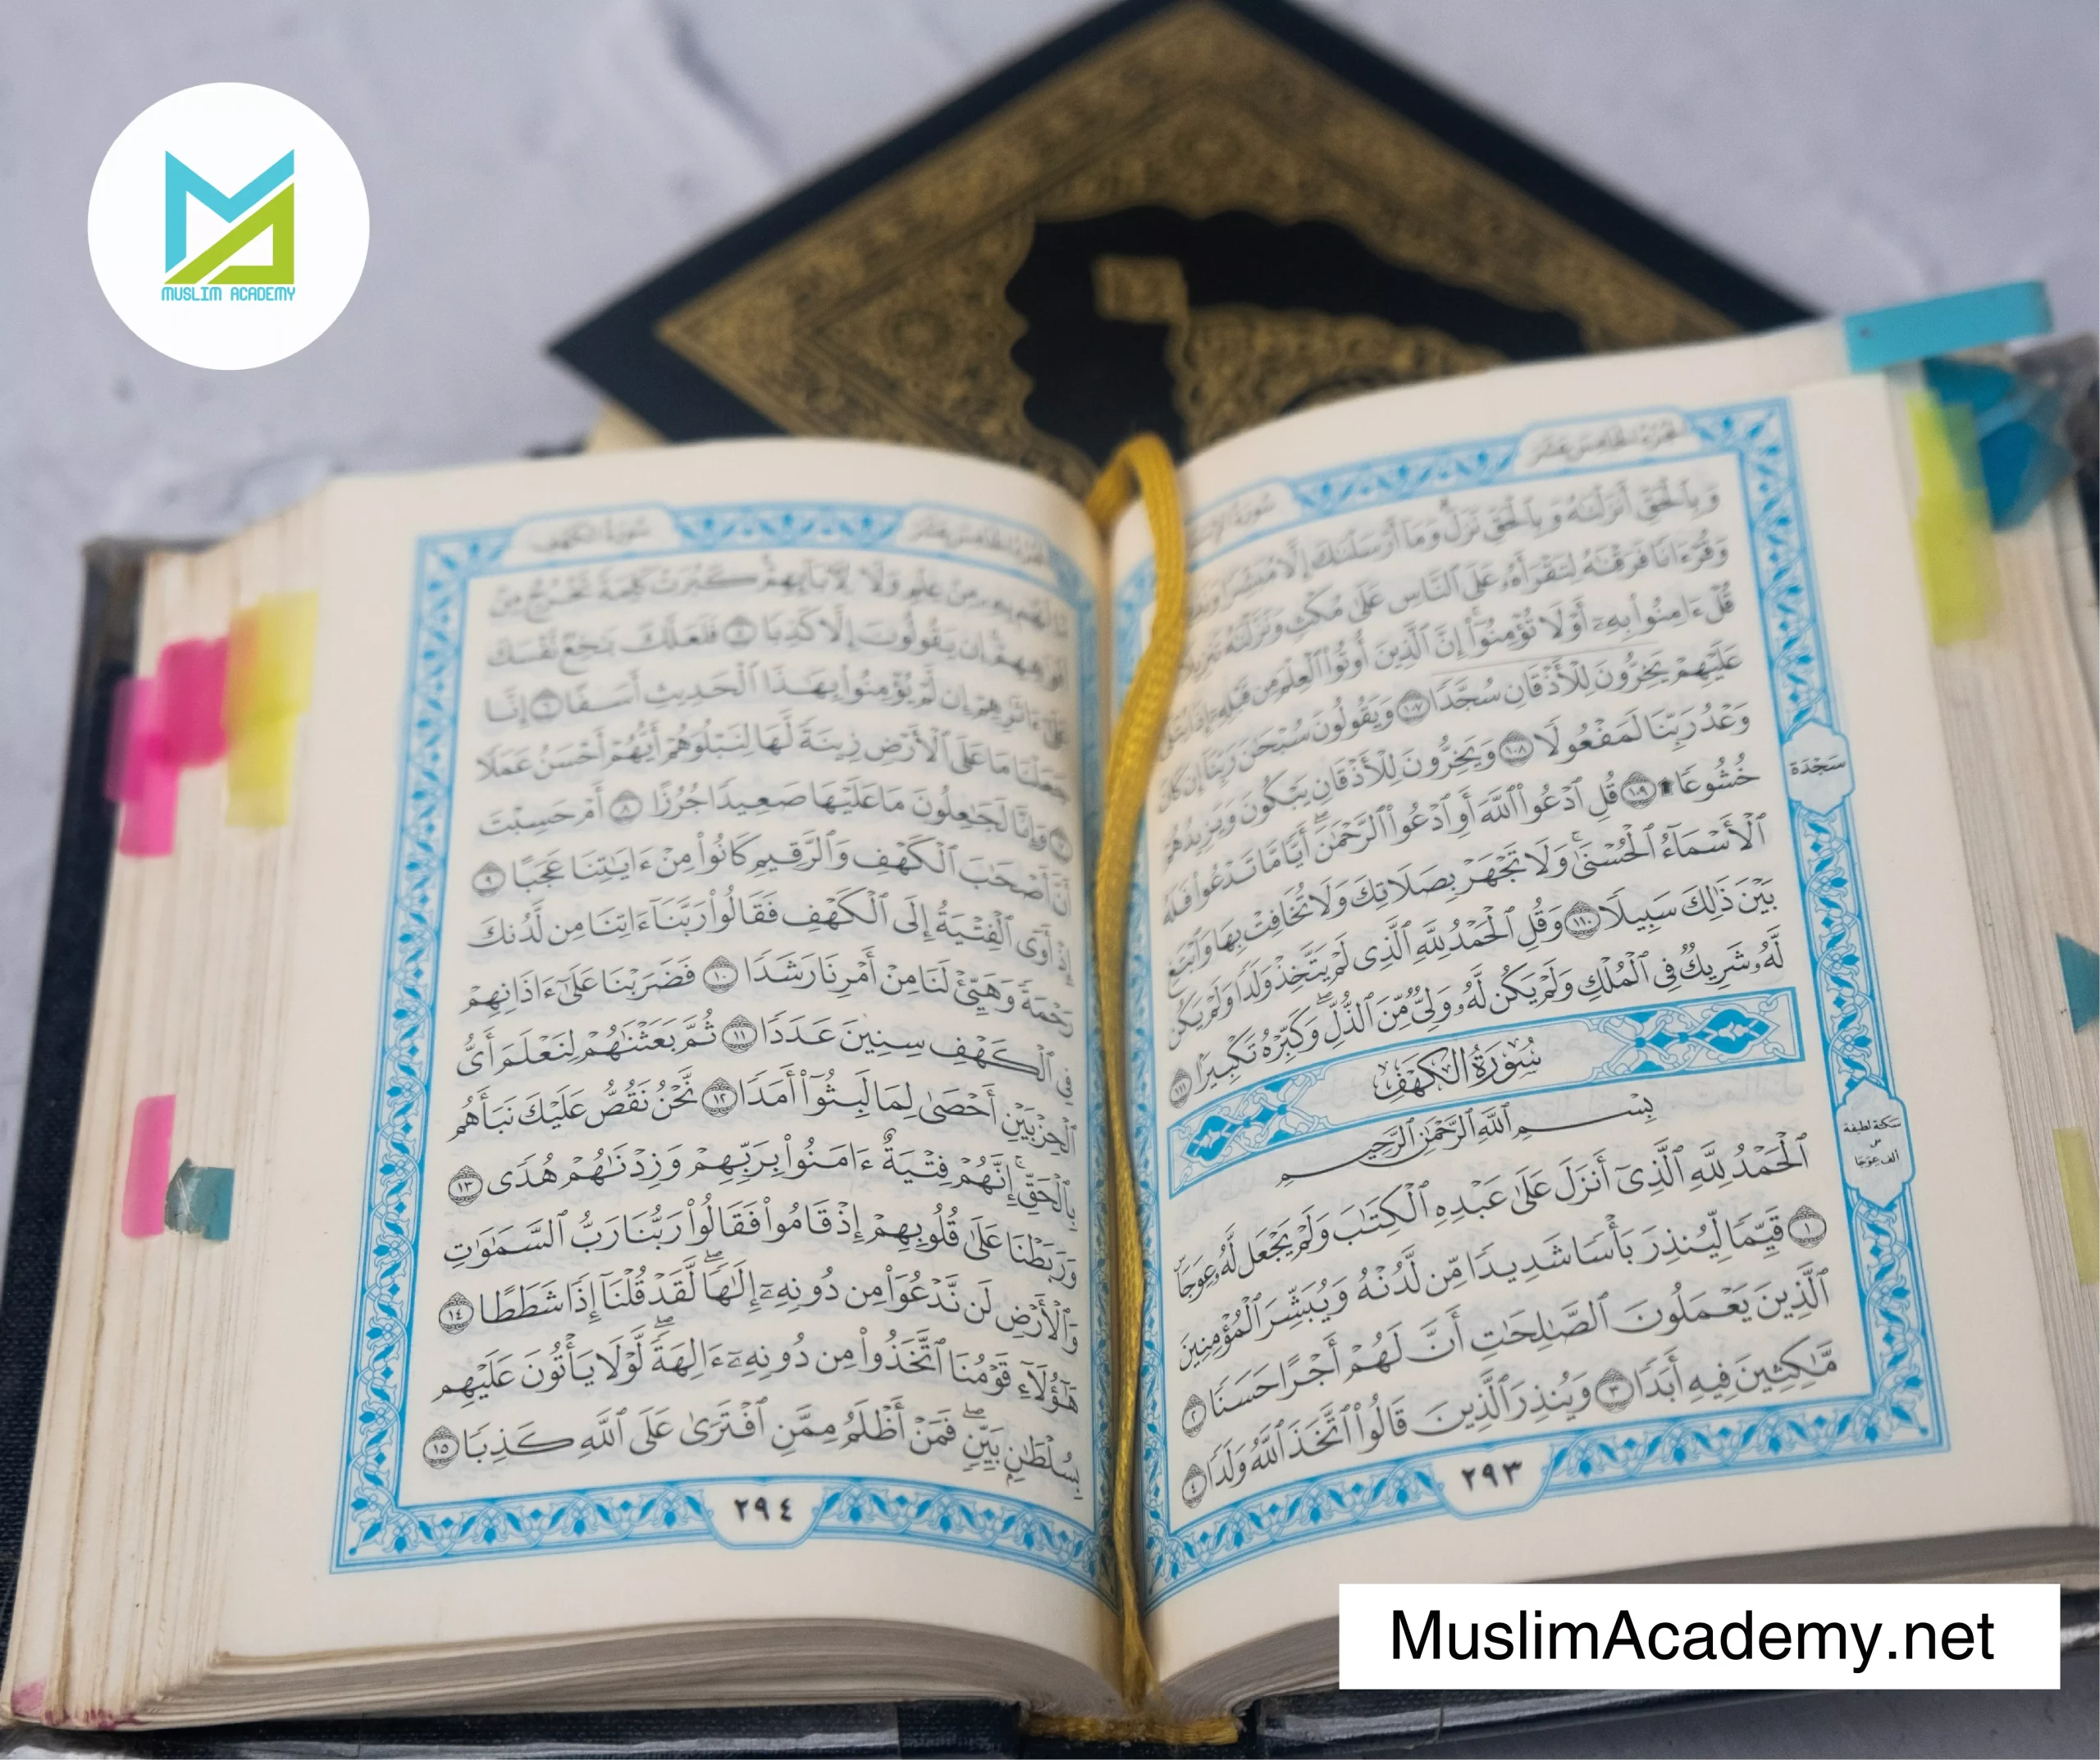 MUSLIM ACADEMY
الجزء الخامس عشر
سورة
وَبِالْحَقِّ أَنزَلْنَاهُ وَبِالْحَقِّ نَزَلَ وَمَا أَرْسَلْنَاكَ إِلَّا مُبَشِّرًا
وَقُرْءَانًا فَرَقْنَاهُ لِتَقْرَأَهُ عَلَى النَّاسِ عَلَىٰ مُكْثٍ وَنَزَّلْنَاهُ تَنزِيلًا
قُلْ ءَامِنُوا۟ بِهِۦٓ أَوْ لَا تُؤْمِنُوٓا۟ إِنَّ الَّذِينَ أُوتُوا۟ الْعِلْمَ مِن قَبْلِهِۦٓ إِذَا يُتْلَىٰ
عَلَيْهِمْ يَخِرُّونَ لِلْأَذْقَانِ سُجَّدًا ١٠٧ وَيَقُولُونَ سُبْحَٰنَ رَبِّنَآ إِن كَانَ
وَعْدُ رَبِّنَا لَمَفْعُولًا ١٠٨ وَيَخِرُّونَ لِلْأَذْقَانِ يَبْكُونَ وَيَزِيدُهُمْ
خُشُوعًا ۩ ١٠٩ قُلِ ٱدْعُوا۟ ٱللَّهَ أَوِ ٱدْعُوا۟ ٱلرَّحْمَٰنَ ۖ أَيًّا مَّا تَدْعُوا۟ فَلَهُ
ٱلْأَسْمَآءُ ٱلْحُسْنَىٰ ۚ وَلَا تَجْهَرْ بِصَلَاتِكَ وَلَا تُخَافِتْ بِهَا وَٱبْتَغِ
بَيْنَ ذَٰلِكَ سَبِيلًا ١١٠ وَقُلِ ٱلْحَمْدُ لِلَّهِ ٱلَّذِى لَمْ يَتَّخِذْ وَلَدًا وَلَمْ يَكُن
لَّهُۥ شَرِيكٌ فِى ٱلْمُلْكِ وَلَمْ يَكُن لَّهُۥ وَلِىٌّ مِّنَ ٱلذُّلِّ ۖ وَكَبِّرْهُ تَكْبِيرًۢا ١١١
سُورَةُ الكَهْفِ
بِسْمِ ٱللَّهِ ٱلرَّحْمَٰنِ ٱلرَّحِيمِ
ٱلْحَمْدُ لِلَّهِ ٱلَّذِىٓ أَنزَلَ عَلَىٰ عَبْدِهِ ٱلْكِتَٰبَ وَلَمْ يَجْعَل لَّهُۥ عِوَجَاۜ
١ قَيِّمًا لِّيُنذِرَ بَأْسًا شَدِيدًا مِّن لَّدُنْهُ وَيُبَشِّرَ ٱلْمُؤْمِنِينَ
ٱلَّذِينَ يَعْمَلُونَ ٱلصَّٰلِحَٰتِ أَنَّ لَهُمْ أَجْرًا حَسَنًا ٢
مَّٰكِثِينَ فِيهِ أَبَدًا ٣ وَيُنذِرَ ٱلَّذِينَ قَالُوا۟ ٱتَّخَذَ ٱللَّهُ وَلَدًا ٤
٢٩٣
سَجْدَة
سكتة لطيفة
على
ألف عِوَجَا
الجزء الخامس عشر
سورة الكهف
مَّا لَهُم بِهِۦ مِنْ عِلْمٍ وَلَا لِـَٔابَآئِهِمْ ۚ كَبُرَتْ كَلِمَةً تَخْرُجُ مِنْ
أَفْوَٰهِهِمْ ۚ إِن يَقُولُونَ إِلَّا كَذِبًا ٥ فَلَعَلَّكَ بَٰخِعٌ نَّفْسَكَ
عَلَىٰٓ ءَاثَٰرِهِمْ إِن لَّمْ يُؤْمِنُوا۟ بِهَٰذَا ٱلْحَدِيثِ أَسَفًا ٦ إِنَّا
جَعَلْنَا مَا عَلَى ٱلْأَرْضِ زِينَةً لَّهَا لِنَبْلُوَهُمْ أَيُّهُمْ أَحْسَنُ عَمَلًا
٧ وَإِنَّا لَجَٰعِلُونَ مَا عَلَيْهَا صَعِيدًا جُرُزًا ٨ أَمْ حَسِبْتَ
أَنَّ أَصْحَٰبَ ٱلْكَهْفِ وَٱلرَّقِيمِ كَانُوا۟ مِنْ ءَايَٰتِنَا عَجَبًا ٩
إِذْ أَوَى ٱلْفِتْيَةُ إِلَى ٱلْكَهْفِ فَقَالُوا۟ رَبَّنَآ ءَاتِنَا مِن لَّدُنكَ
رَحْمَةً وَهَيِّئْ لَنَا مِنْ أَمْرِنَا رَشَدًا ١٠ فَضَرَبْنَا عَلَىٰٓ ءَاذَانِهِمْ
فِى ٱلْكَهْفِ سِنِينَ عَدَدًا ١١ ثُمَّ بَعَثْنَٰهُمْ لِنَعْلَمَ أَىُّ
ٱلْحِزْبَيْنِ أَحْصَىٰ لِمَا لَبِثُوٓا۟ أَمَدًا ١٢ نَّحْنُ نَقُصُّ عَلَيْكَ نَبَأَهُم
بِٱلْحَقِّ ۚ إِنَّهُمْ فِتْيَةٌ ءَامَنُوا۟ بِرَبِّهِمْ وَزِدْنَٰهُمْ هُدًى ١٣
وَرَبَطْنَا عَلَىٰ قُلُوبِهِمْ إِذْ قَامُوا۟ فَقَالُوا۟ رَبُّنَا رَبُّ ٱلسَّمَٰوَٰتِ
وَٱلْأَرْضِ لَن نَّدْعُوَا۟ مِن دُونِهِۦٓ إِلَٰهًا ۖ لَّقَدْ قُلْنَآ إِذًا شَطَطًا ١٤
هَٰٓؤُلَآءِ قَوْمُنَا ٱتَّخَذُوا۟ مِن دُونِهِۦٓ ءَالِهَةً ۖ لَّوْلَا يَأْتُونَ عَلَيْهِم
بِسُلْطَٰنٍۭ بَيِّنٍ ۖ فَمَنْ أَظْلَمُ مِمَّنِ ٱفْتَرَىٰ عَلَى ٱللَّهِ كَذِبًا ١٥
٢٩٤
MuslimAcademy.net